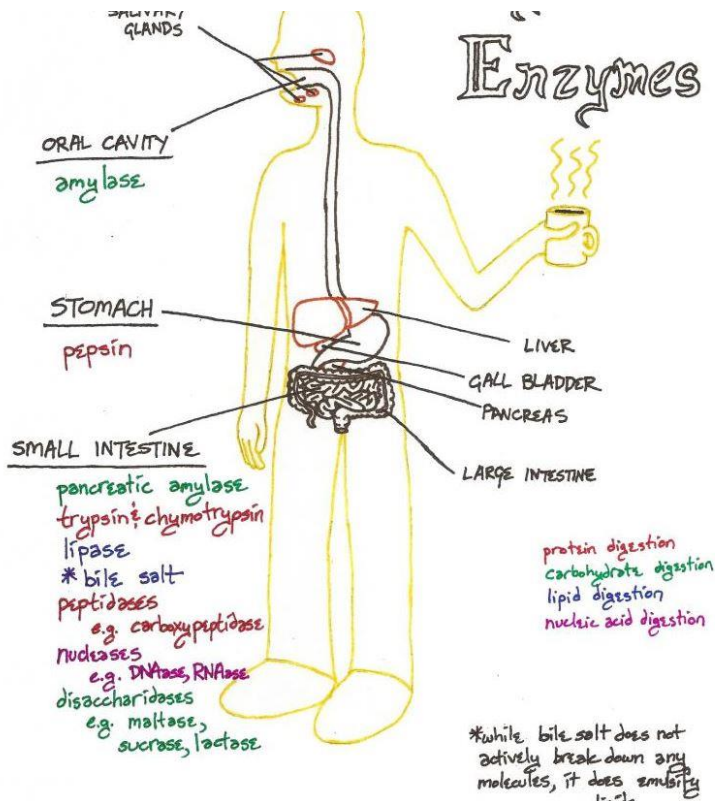 SALIVARY
GLANDS
Enzymes
ORAL CAVITY
amylase
STOMACH
pepsin
LIVER
GALL BLADDER
PANCREAS
SMALL INTESTINE
LARGE INTESTINE
pancreatic amylase
trypsin & chymotrypsin
lipase
* bile salt
peptidases
e.g. carboxypeptidase
nucleases
e.g. DNAase, RNAase
disaccharidases
e.g. maltase,
sucrase, lactase
protein digestion
carbohydrate digestion
lipid digestion
nucleic acid digestion
*while bile salt does not
actively break down any
molecules, it does emulsify